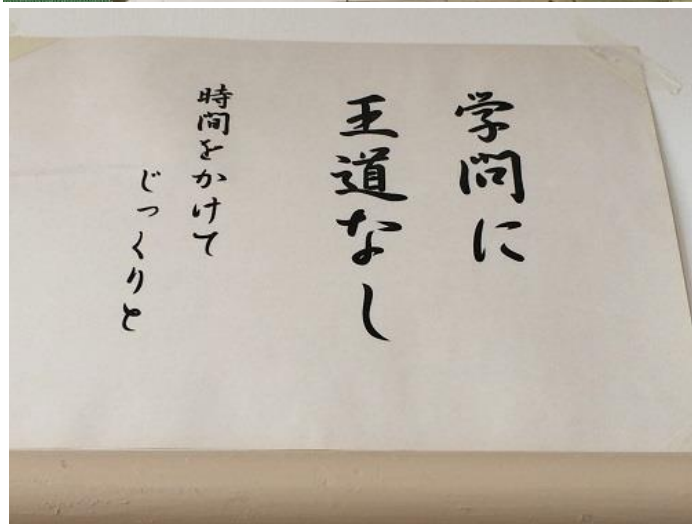 学問に
王道なし
時間をかけて
じっくりと